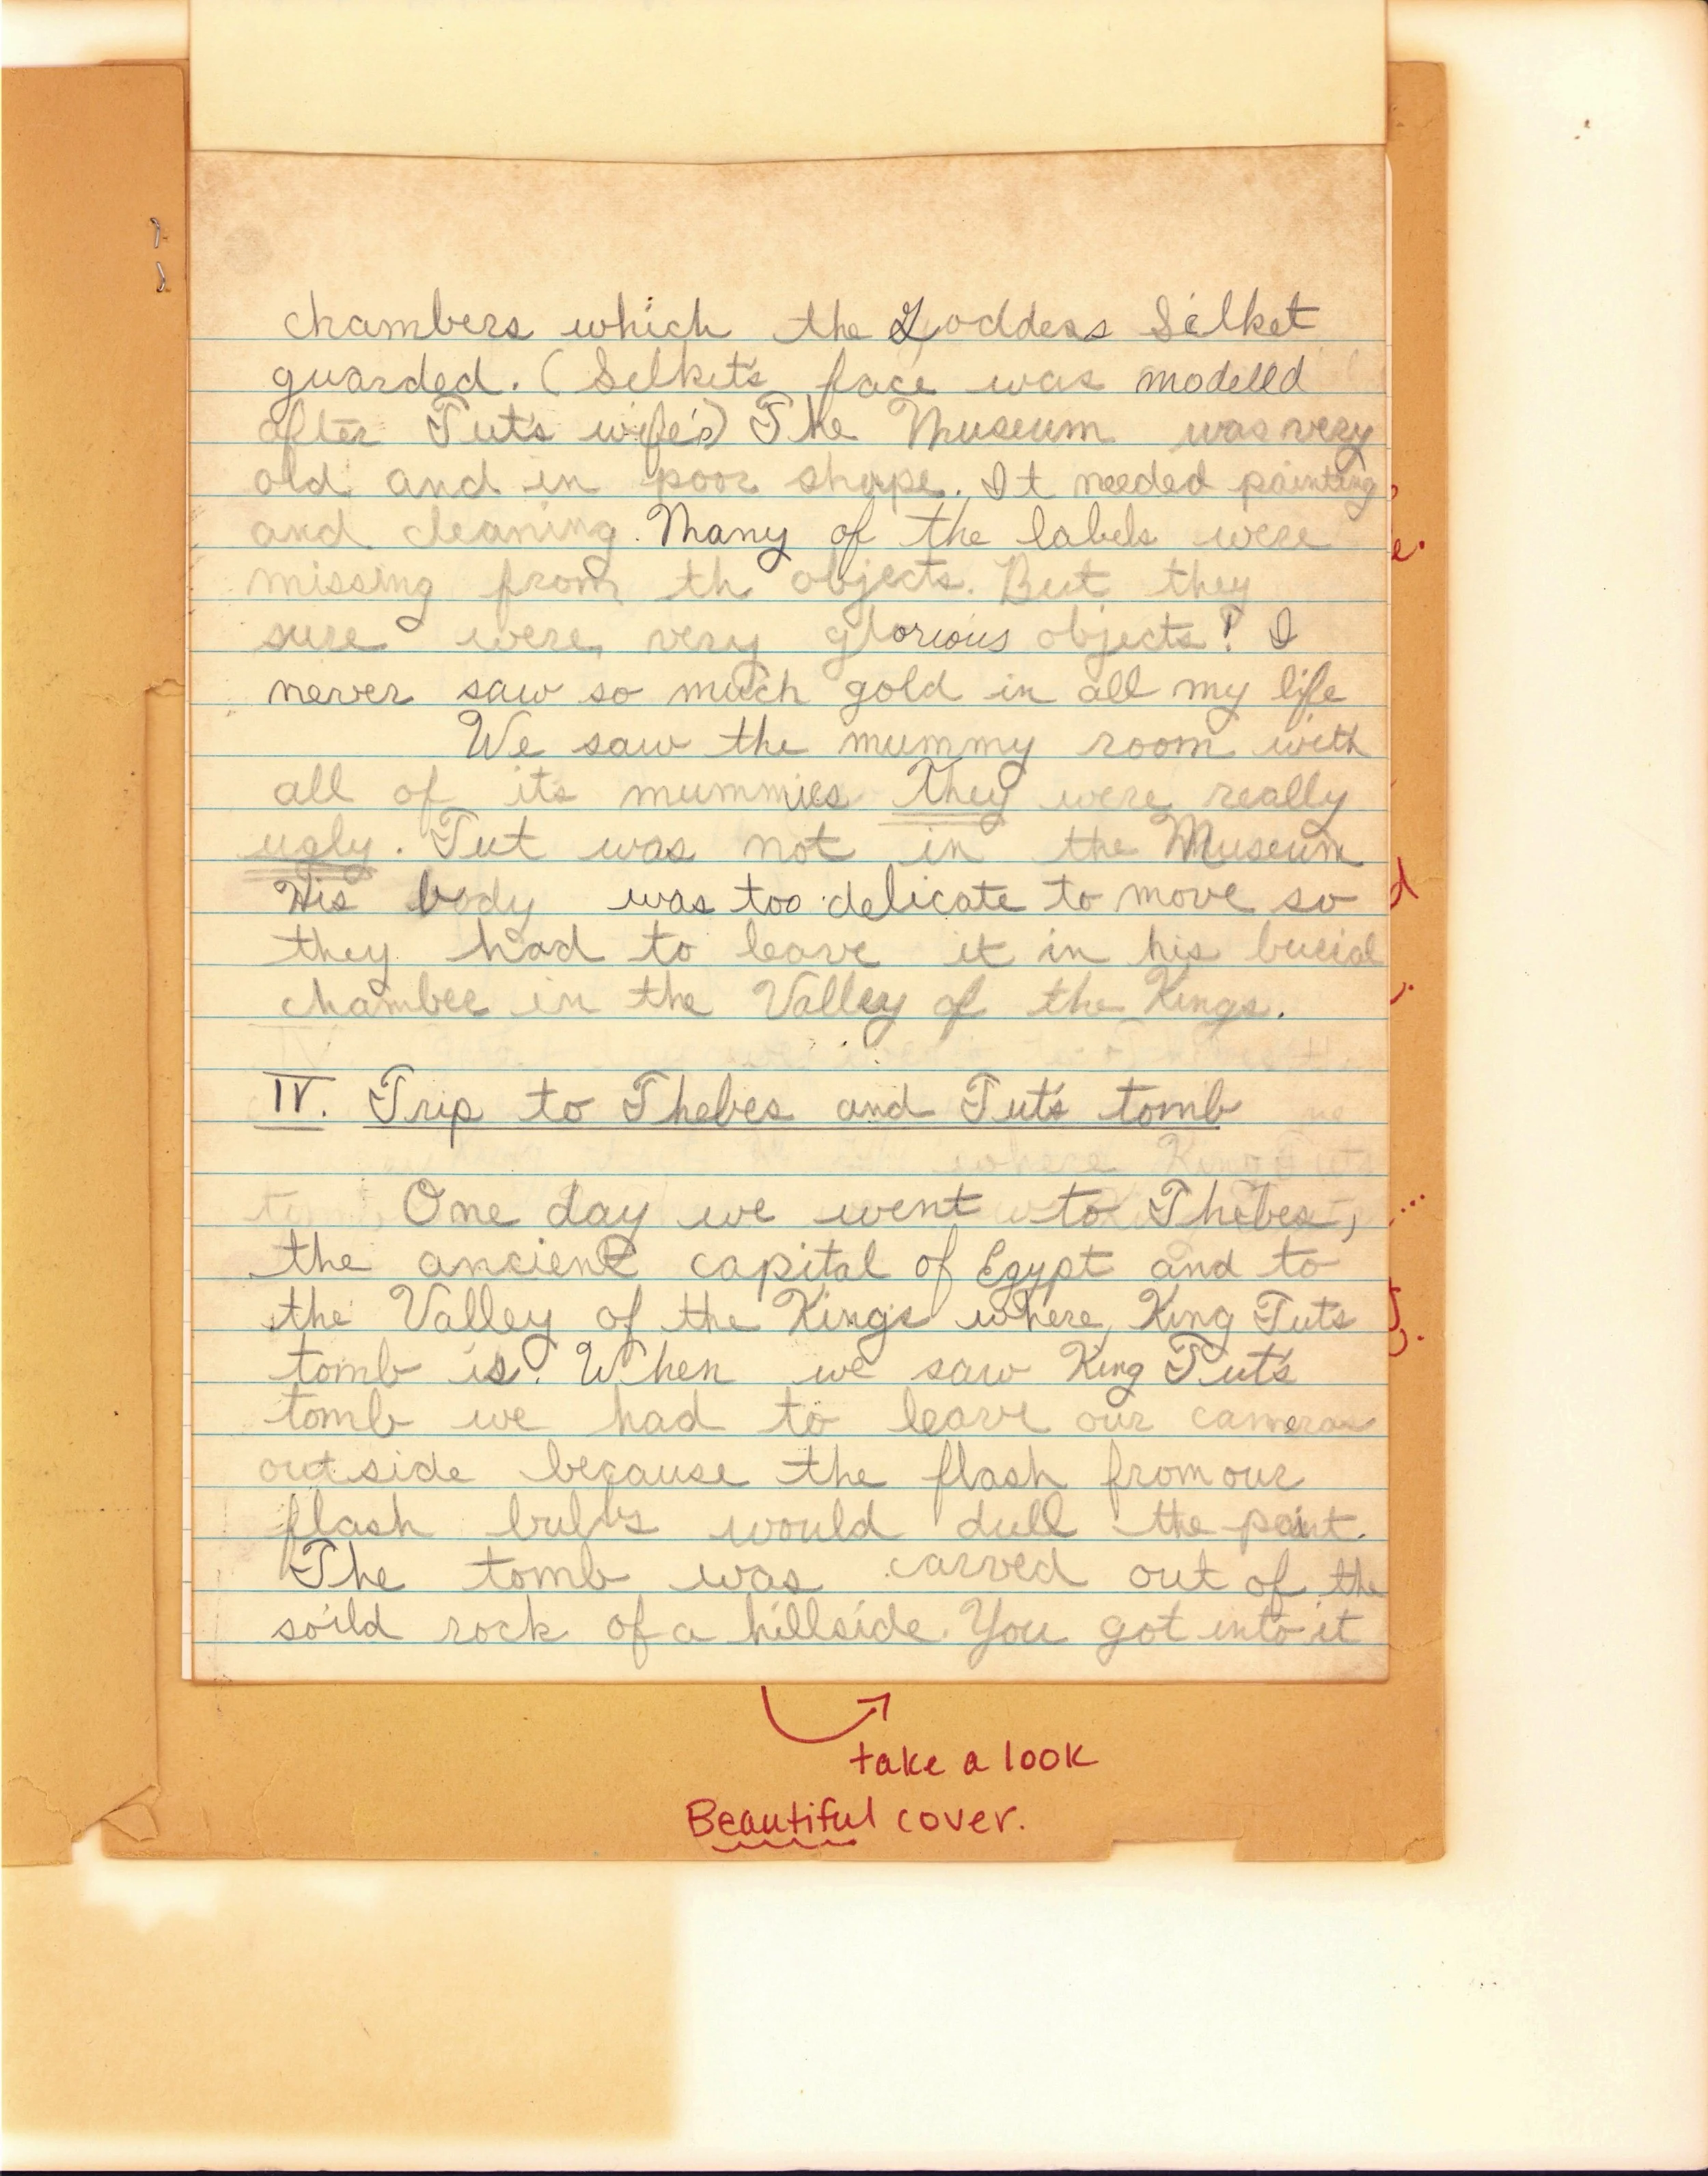 chambers which the Goddess Selket
guarded. (Selket's face was modelld
after Tut's wife's) The Museum was very
old and in poor shape. It needed painting
and cleaning. Many of the labels were
missing from th objects. But they
sure were very glorious objects! I
never saw so much gold in all my life
We saw the mummy room with
all of its mummies They were really
ugly. Tut was not in the Museum
His body was too delicate to move so
they had to leave it in his burial
chamber in the Valley of the Kings.
IV. Trip to Thebes and Tut's tomb
One day we went to Thebes,
the ancient capital of Egypt and to
the Valley of the Kings where King Tut's
tomb is. When we saw King Tut's
tomb we had to leave our cameras
outside because the flash from our
flash bulbs would dull the paint.
The tomb was carved out of the
soild rock of a hillside. You got into it
take a look
Beautiful cover.